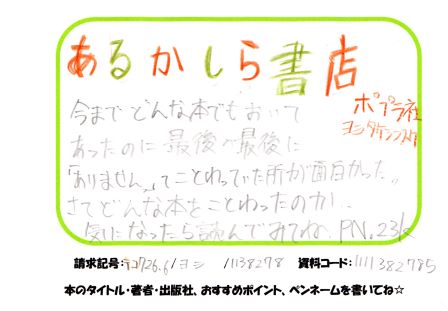 あるかしら書店
ポプラ社
ヨシタケシンスケ
今まで どんな本でも おいて
あったのに 最後の最後に
「ありません」ってことわっていた所が面白かった。
さてどんな本をことわったのか..
気になったら読んでみてね PN.23
請求記号:テコ726.6/ヨシ /1138278 資料コード:1111382785
本のタイトル・著者・出版社、おすすめポイント、ペンネームを書いてね☆